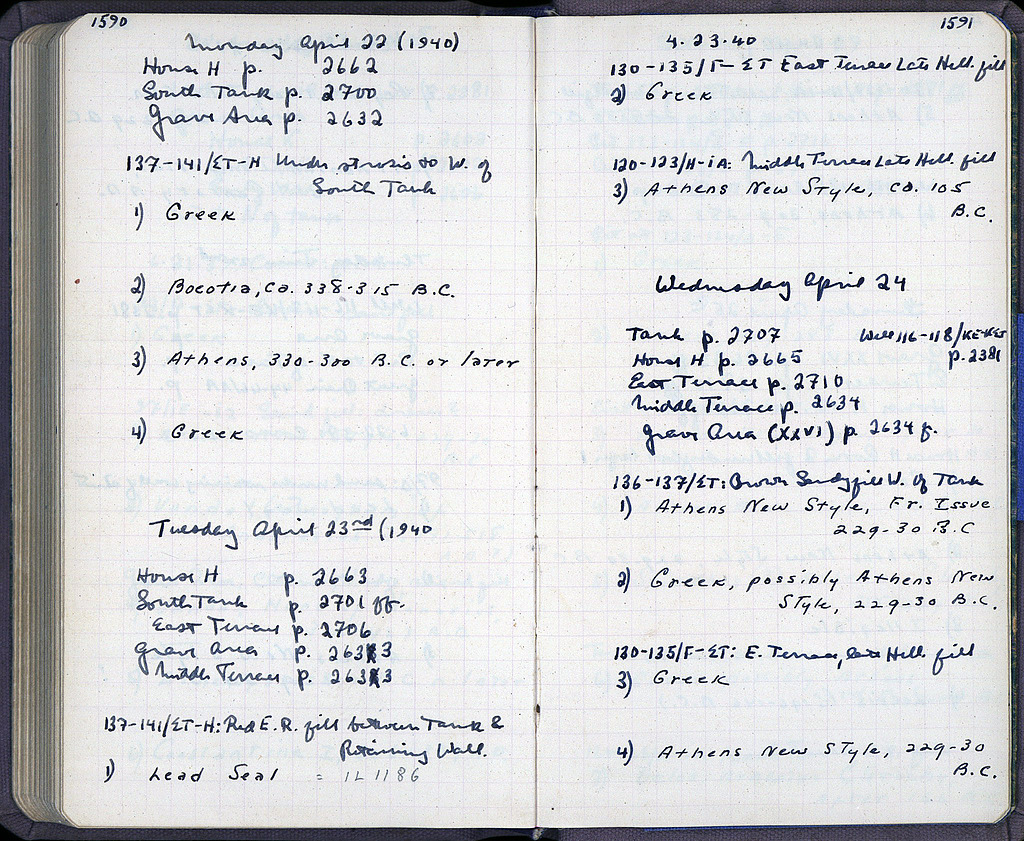 1590
Monday April 22 (1940)
House H p. 2662
South Tank p. 2700
Grave Area p. 2632
137-141/ΣT-H Under strosis to W. of
South Tank
1) Greek
2) Boeotia, ca. 338-315 B.C.
3) Athens, 330-300 B.C. or later
4) Greek
Tuesday April 23rd (1940
House H p. 2663
South Tank p. 2701 ff.
East Terrace p. 2706
Grave Area p. 2633
Middle Terrace p. 2633
137-141/ΣT-H: Red E.R. fill between Tank &
Retaining Wall.
1) Lead Seal = IL 1186
1591
4.23.40
130-135/F-ΣT East Terrace Late Hell. fill
2) Greek
120-123/H-IA: Middle Terrace Late Hell. fill
3) Athens New Style, ca. 105
B.C.
Wednesday April 24
Tank p. 2707 Well 116-118/KE-KΣT
House H p. 2665 p. 2381
East Terrace p. 2710
Middle Terrace p. 2634
Grave Area (XXVI) p. 2634 f.
136-137/ΣT: Brown Sandy fill W. of Tank
1) Athens New Style, Fr. Issue
229-30 B.C
2) Greek, possibly Athens New
Style, 229-30 B.C.
130-135/F-ΣT: E. Terrace, late Hell. fill
3) Greek
4) Athens New Style, 229-30
B.C.